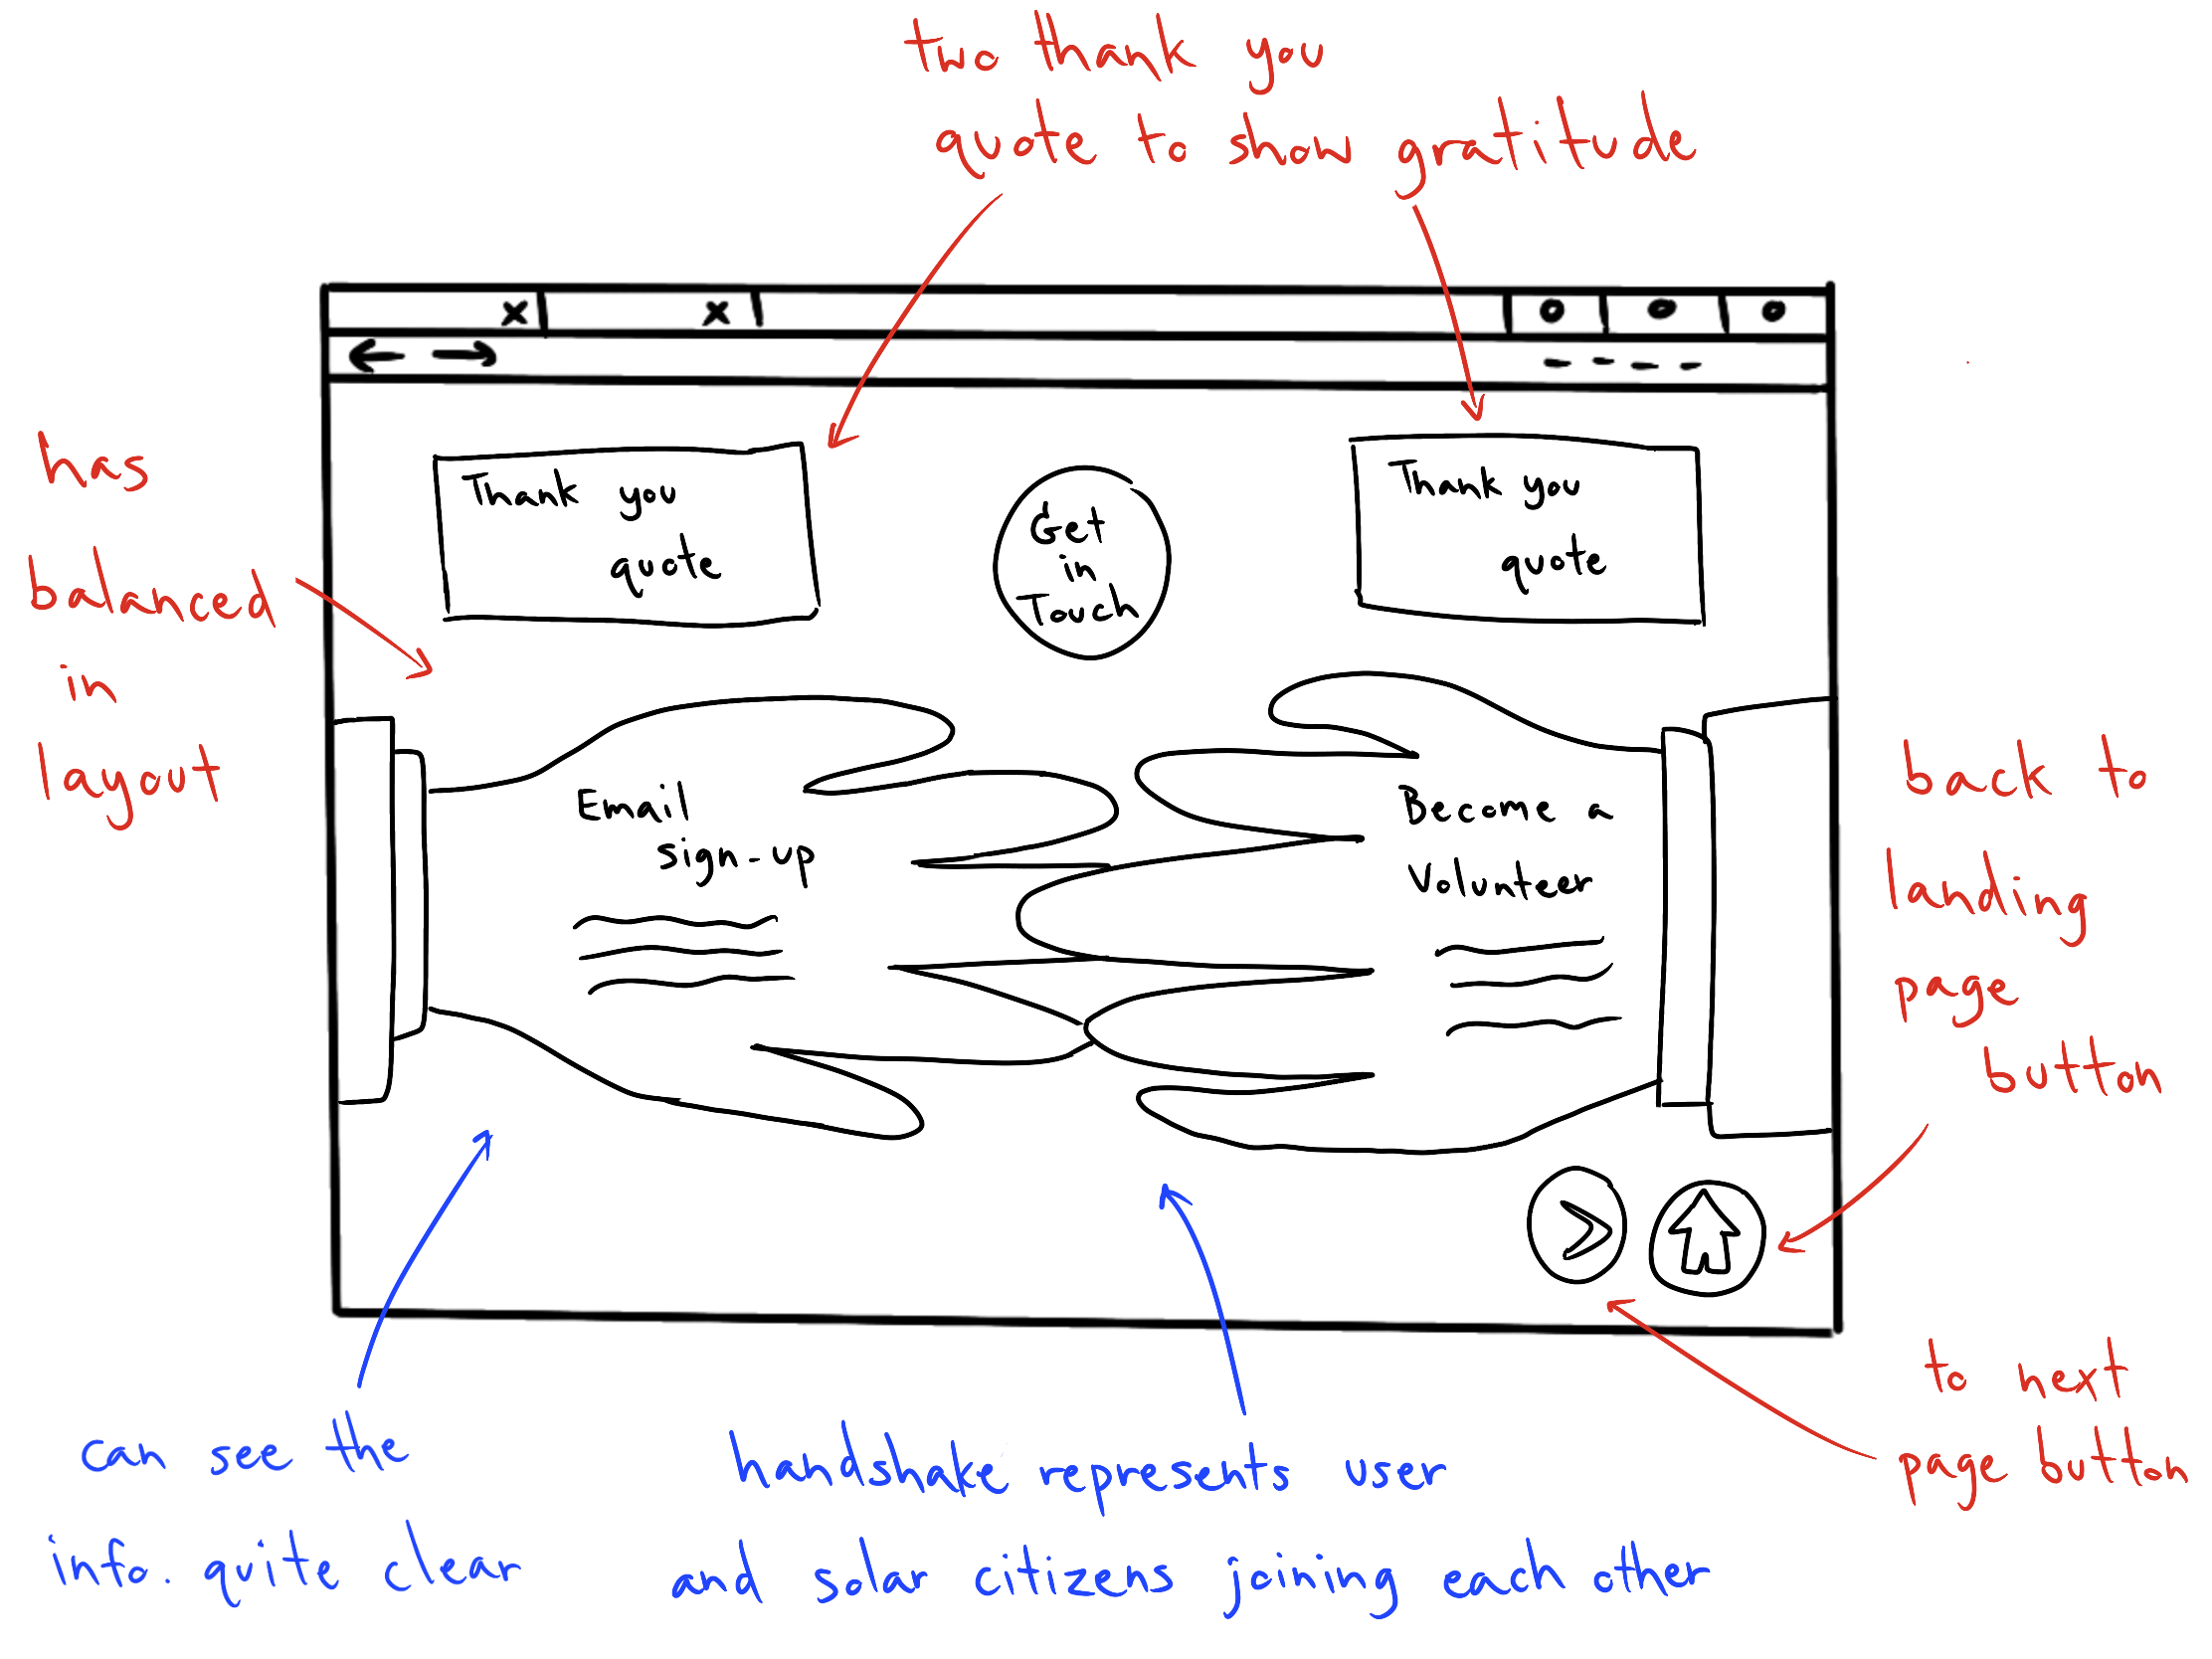 two thank you
quote to show gratitude
has
balanced
in
layout
Thank you
quote
Get
in
Touch
Thank you
quote
Email
sign-up
Become a
Volunteer
back to
landing
page
button
to next
page button
can see the
info. quite clear
handshake represents user
and solar citizens joining each other